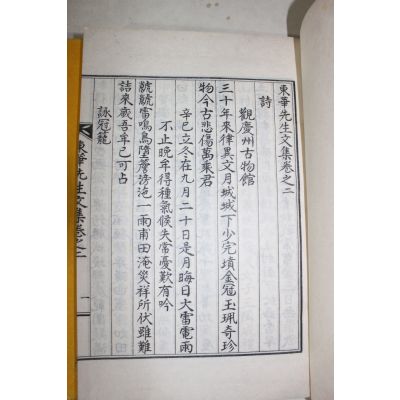 東華先生文集卷之二
詩
觀慶州古物館
三十年來律異文月城城下少完墳金冠玉珮奇珍
物今古悲傷萬乘君
辛巳立冬在九月二十日是月晦日大雷電雨
不止晚牟得種氣候失當憂歎有吟
虩虩雷鳴鳥墮簷滂沱一雨甫田淹災祥所伏雖難
詰來歲吾牟已可占
詠冠籠
東華先生文集卷之二
一